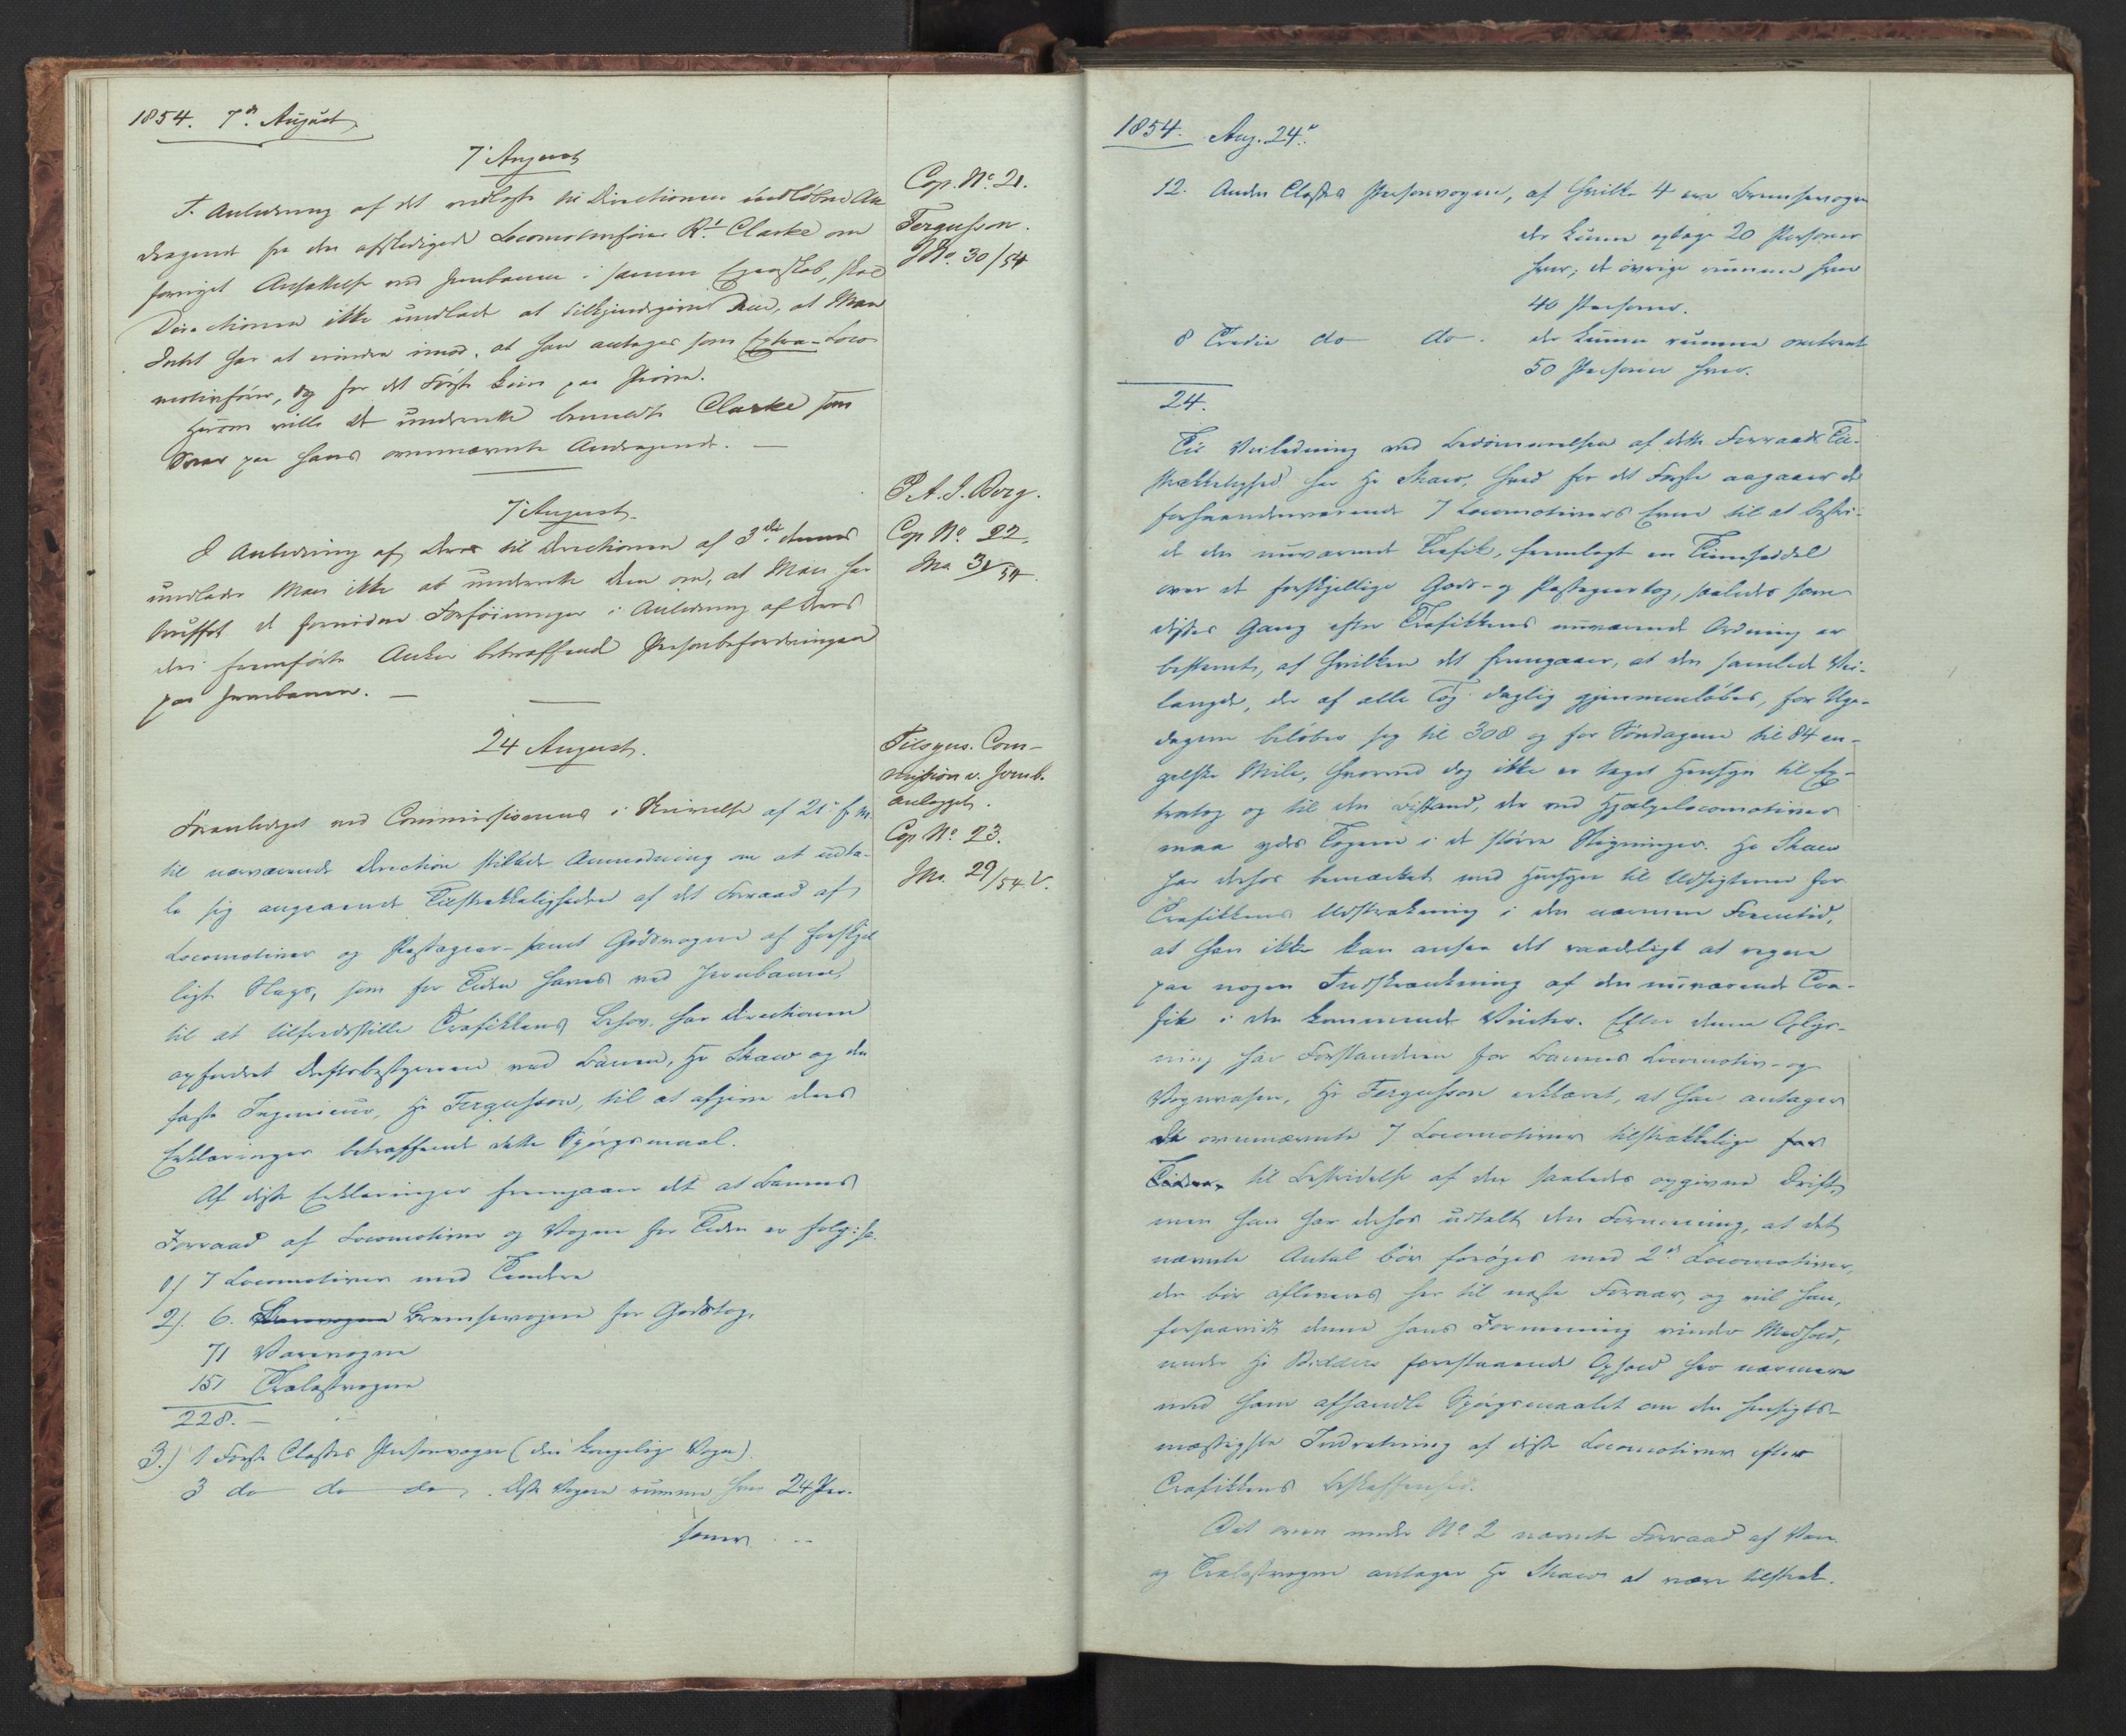 1854. 7de August.
7 August
Cop. No. 21.
Fergusson.
JNo. 30/54
I Anledning af det vedlagte til Directionen indløbne An
dragende fra den afskedigede Locomotivfører Rt. Clarke om
fornyet Ansættelse ved Jernbanen i samme Egenskab, skal
Directionen ikke undlade at tilkjendegive Dem, at Man
Intet har at erindre imod, at han antages som Extra-Loco-
motivfører, og for det Første kun paa Prøve.
Herom ville De underrette bemeldte Clarke som
Svar paa hans ovennævnte Andragende. —
7 August.
P. A. J. Borg.
Cop No. 22.
JNo 31/54.
I Anledning af Deres til Directionen af 3die dennes
undlader Man ikke at underrette Dem om, at Man har
truffet de fornødne Forføininger i Anledning af Deres
deri fremførte Anker betræffende Personbefordringen
paa Jernbanen. —
24 August.
Tilsyns. Com-
mission v. Jernb.
anlægget.
Cop No. 23.
JNo. 29/54. V.
Foranlediget ved Commissionens i Skrivelse af 21de f. M.
til nærværende Direction stillede Anmodning om at udta-
le sig angaaende Tilstrækkeligheden af det Forraad af
Locomotiver og Passageer- samt Godsvogne af forskjel
ligt Slags, som for Tiden haves ved Jernbanen,
til at tilfredsstille Trafikkens Behov, har Directionen
opfordret Driftsbestyreren ved Banen, Hr Shaw og den
faste Ingenieur, Hr Fergusson, til at afgive deres
Erklæringer betræffende dette Spørgsmaal.
Af disse Erklæringer fremgaaer det at Banens
Forraad af Locomotiver og Vogne for Tiden er følg:
1) 7 Locomotiver med Tendere
2). 6. Bremsevogne for Godstog.
71 Varevogne
151 Trælastvogne
228. —
3.) 1 Første Classes Personvogn (den kongelige Vogn).
3 do do do. Disse Vogne rumme hver 24 Per-
soner.
1854. Aug. 24de.
12. Anden Classes Personvogne, af hvilke 4 ere Bremsevogne
der kunne optage 20 Personer
hver; de øvrige rumme hver
40 Personer.
8 Tredie do do. der kunne rumme omtrent
50 Personer hver.
24.
Til Veiledning ved Bedømmelsen af dette Forraads Til-
strækkelighed har Hr Shaw, hvad for det Første angaaer de
forhaandenværende 7 Locomotivers Evne til at bestri-
de den nuværende Trafik, fremlagt en Timeseddel
over de forskjellige Gods- og Passageertog, saaledes som
disses Gang efter Trafikkens nuværende Ordning er
bestemt, af hvilken det fremgaaer, at den samlede Vei-
længde, der af alle Tog daglig gjennemløbes, for Uge-
dagene beløber sig til 308 og for Søndagene til 84 en-
gelske Mile, hvorved dog ikke er taget Hensyn til Ex-
tratog og til den Bistand, der ved Hjælpelocomotiver
maa ydes Togene i de større Stigninger. Hr Shaw
har derhos bemærket med Hensyn til Udsigterne for
Trafikkens Udstrækning i den nærmere Fremtid,
at han ikke kan ansee det raadeligt at regne
paa nogen Indskrænkning af den nuværende Tra-
fik i den kommende Vinter. Efter denne Oplys-
ning har Forstanderen for Banens Locomotiv- og
Vognvæsen, Hr Fergusson erklæret, at han antager
de ovennævnte 7 Locomotiver tilstrækkelige for
Tiden til Bestridelse af den saaledes opgivne Drift,
men han har derhos udtalt den Formening, at det
nævnte Antal bør forøges med 2de Locomotiver,
der bør afleveres her til næste Foraar, og vil han,
forsaavidt denne hans Formening vinder Medhold,
under Hr Bidders forestaaende Ophold her nærmere
med ham afhandle Spørgsmaalet om den hensigts-
mæssigste Indretning af disse Locomotiver efter
Trafikkens Beskaffenhed.
Det oven under No 2 nævnte Forraad af Vare
og Trælastvogne antager Hr Shaw at være tilstræk-